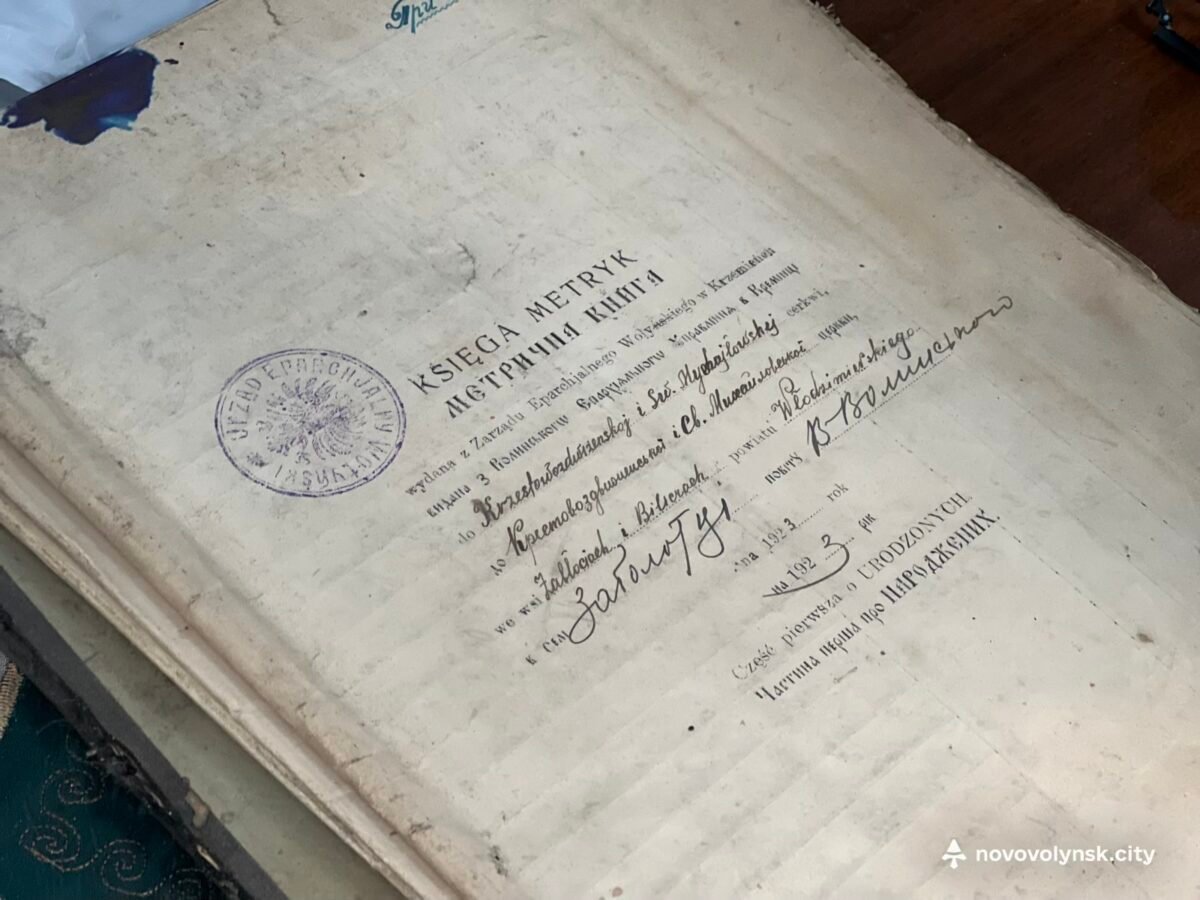 При
URZĄD EPARCHJALNY WOŁYŃSKI
KSIĘGA METRYK
МЕТРИЧНЯ КНИГЯ
wydana z Zarządu Eparchjalnego Wołyńskiego w Krzemieńcu
видана з Волинського Епархіального Управління в Кремянці
do Krzestowozdwiżenskoj i Św. Mychajłowskej cerkwi,
до Крестовоздвиженської і Св. Михайловської церкви,
we wsi Zabłociach i Biliczach powiatu Włodzimierskiego
в селі Заболотці повіту В-Волинського
na 1923 rok
на 1923 рік
Część pierwsza o URODZONYCH.
Частина перша про НАРОДЖЕНИХ.
novovolynsk.city